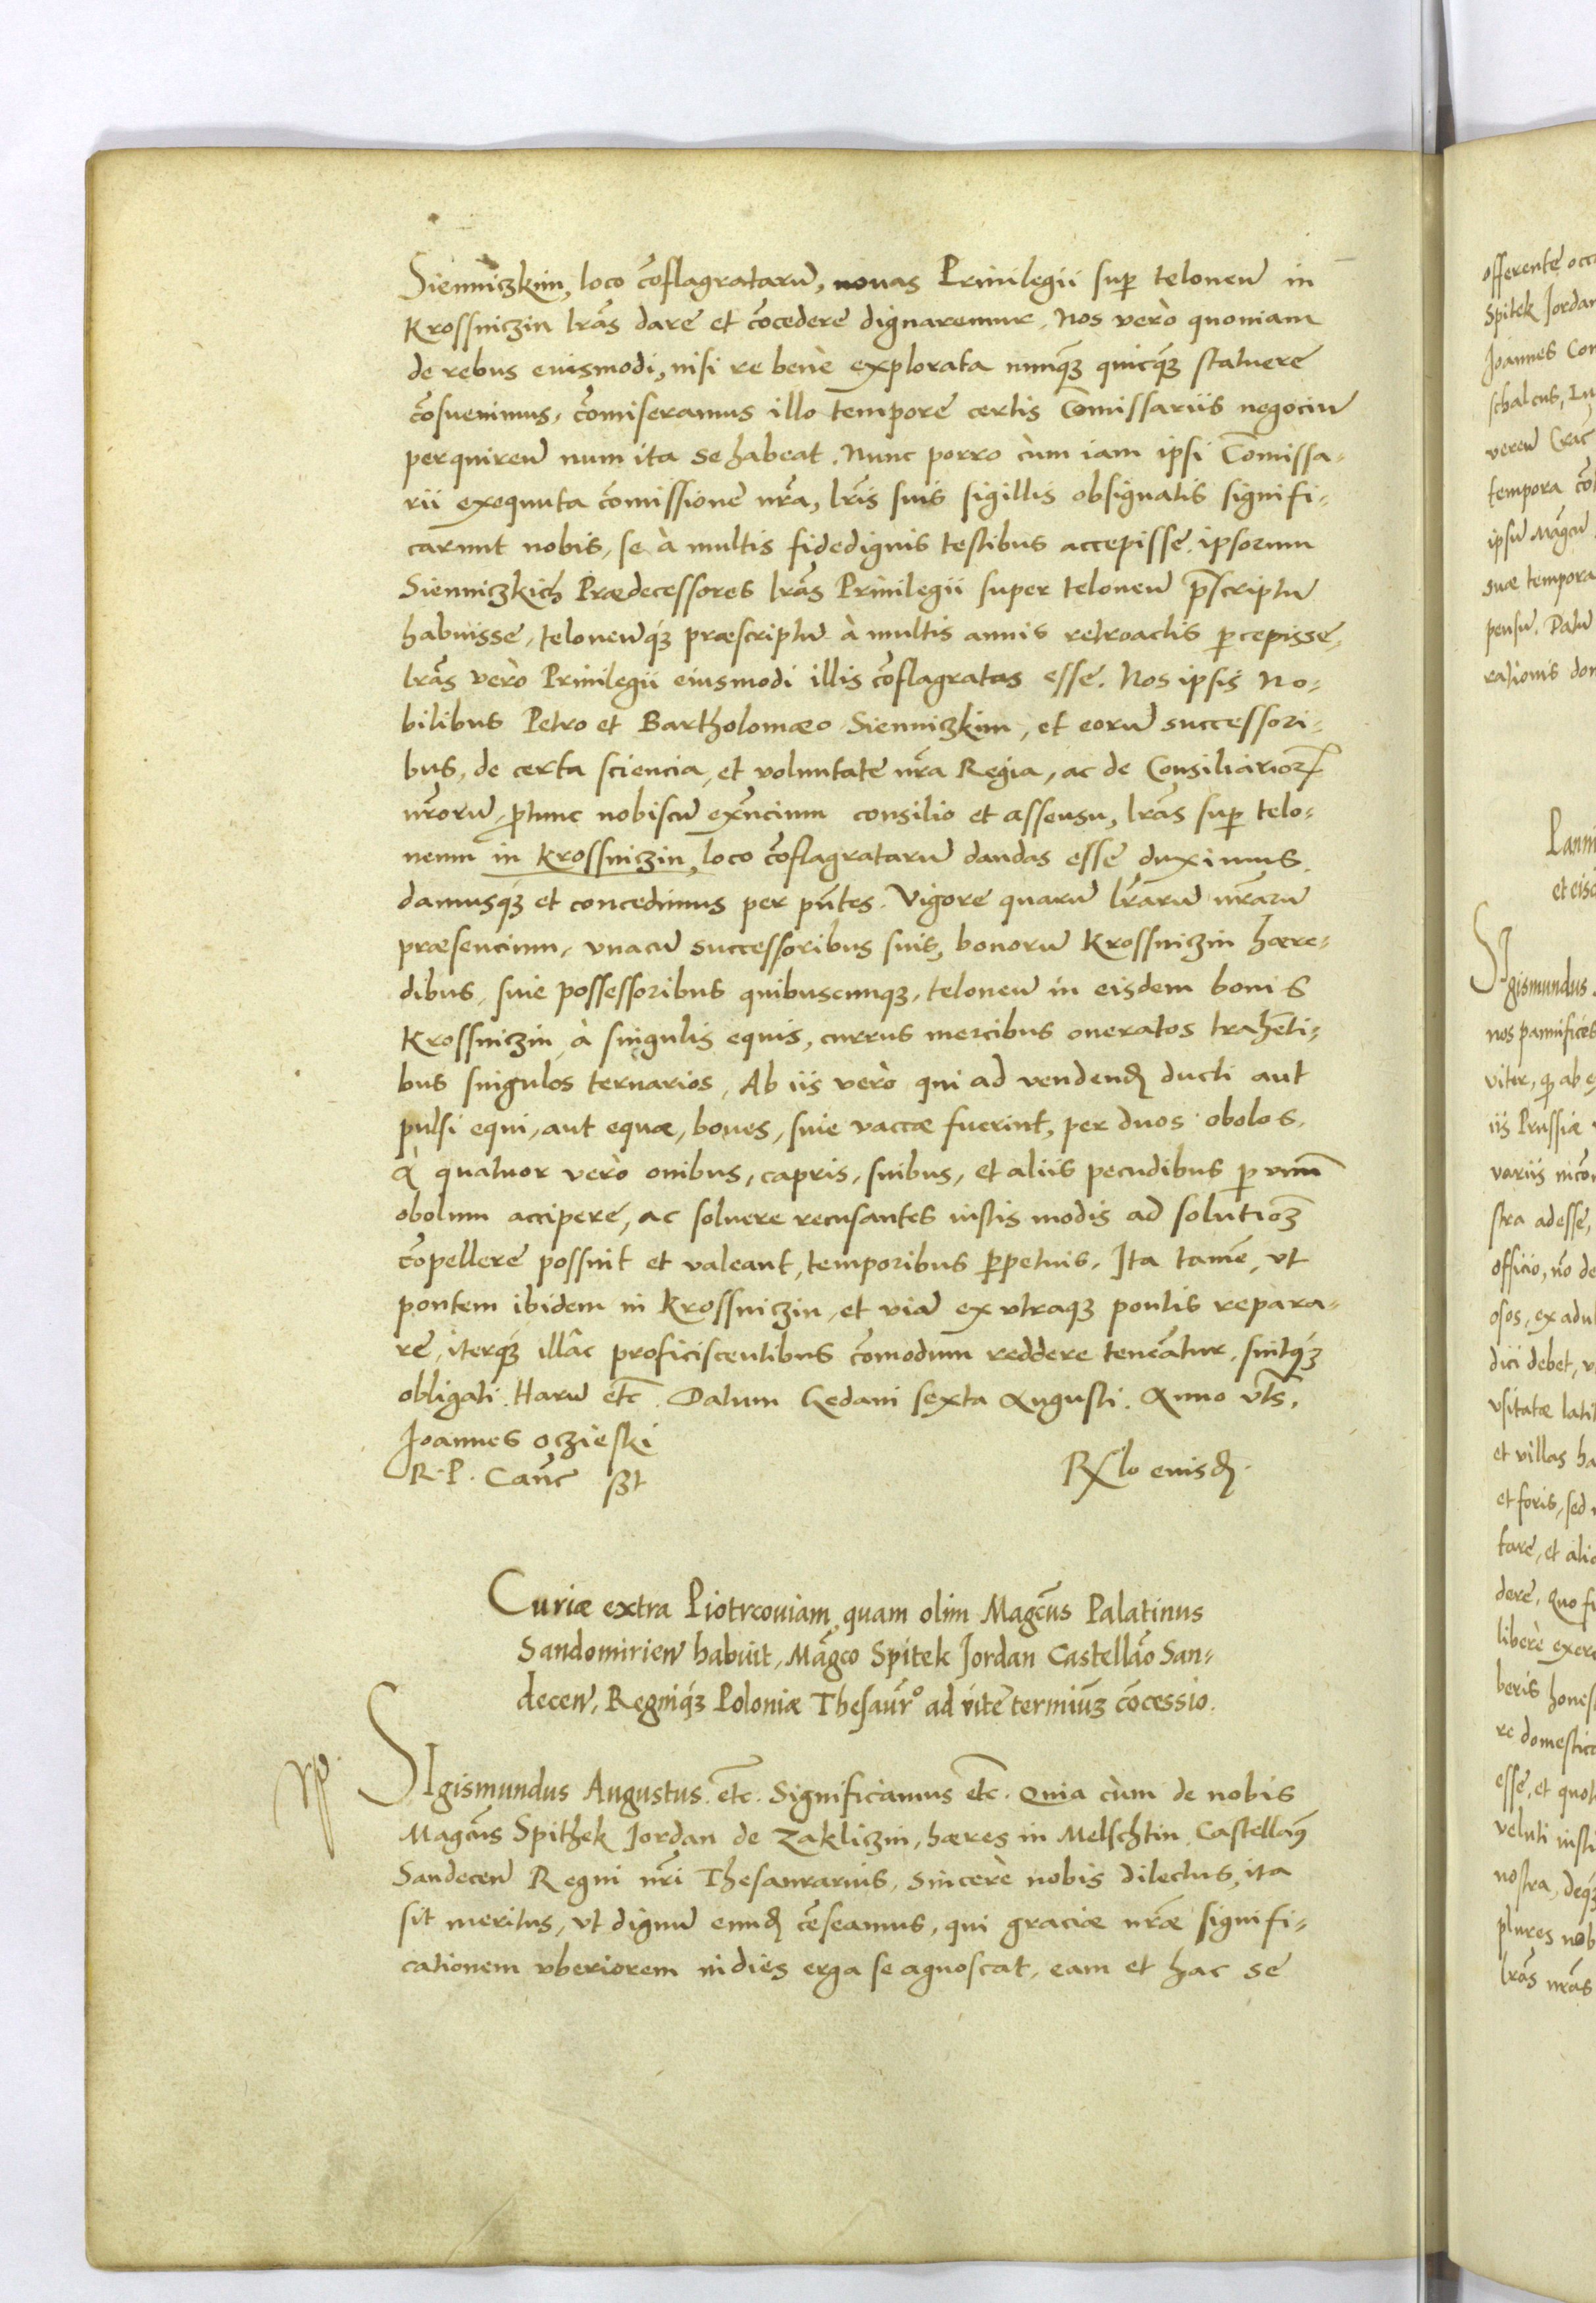 Sienniczkim, loco cõflagratarũ, nouas Priuilegii suꝑ teloneũ in
Krossniczin lrãs dare et cõcedere dignaremur. Nos verò quoniam
de rebus euismodi, nisi re bene explorata nunq̃ꝫ quicq̃ꝫ statuere
cõsueuimus, cõmiseramus illo tempore certis Cõmissariis negociũ
perquirenũ num ita se habeat. Nunc porro cùm iam ipsi Cõmissa-
rii exequuta cõmissione nrã, lrĩs suis sigillis obsignatis signifi-
carunt nobis, se à multis fidedignis testibus accepisse, ipsorum
Sienniczkich Prædecessores lrãs Priuilegii super teloneũ p̃scriptũ
habuisse, teloneũq́ꝫ præscriptũ à multis annis retroactis ꝑcepisse,
lrãs verò Priuilegii eiusmodi illis cõflagratas esse. Nos ipsis No-
bilibus Petro et Bartholomæo Sienniczkim, et eorũ successori-
bus, de certa sciencia, et voluntate nrã Regia, ac de Consiliarioꝝ
nrõrũ, ꝓtunc nobiscũ exñcium consilio et assensu, lrãs suꝑ telo-
neum in Krossniczin, loco cõflagratarũ dandas esse duximus,
damusq́ꝫ et concedimus per pñtes. Vigore quarũ lrãrũ nrãrũ
præsencium, vnacũ successoribus suis, bonorũ Krossniczin hære-
dibus, siue possessoribus quibuscunqꝫ, teloneũ in eisdem bonis
Krossniczin, à singulis equis, currus mercibus oneratos trahẽti-
bus singulos ternarios, Ab iis verò qui ad vendendũ ducti aut
pulsi equi, aut equæ, boues, siue vaccæ fuerint, per duos obolos,
A quatuor verò ouibus, capris, suibus, et aliis pecudibus ꝑ vnũ
obolum accipere, ac soluere recusantes iustis modis ad solutioꝫ
cõpellere possint et valeant, temporibus ꝑpetuis. Ita tamẽ, vt
pontem ibidem in Krossniczin, et viã ex vtraqꝫ pontis repara-
re, iterq́ꝫ illâc proficiscentibus cõmodum reddere teneãtur, sintq́ꝫ
obligati. Harũ etc̃. Datum Gedani sexta Augusti. Anno vts̃.
Joannes Oczieski
R. P. Canc̃ sst
Rx̃lo euisd̃.
Curiæ extra Piotrcouiam, quam olim Magc̃us Palatinus
Sandomirieñ habuit, Mãgco Spitek Jordan Castellão San-
deceñ, Regniq́ꝫ Poloniæ Thesaur̃° ad vite termiũꝫ cõcessio.
Sigismundus Augustus. etc̃. Significamus etc̃. Quia cùm de nobis
Magc̃us Spithek Jordan de Zakliczin, hæres in Melschtin, Castellãꝰ
Sandeceñ Regni nrĩ Thesaurarius, sincerè nobis dilectus, ita
sit meritus, vt dignũ eund̃ cẽseamus, qui graciæ nrãe signifi-
cationem vberiorem indies erga se agnoscat, eam et hac se
offerente, occ
Spitek Jordan
Joannes Con
schalcus, Lu
vereũ Crac̃
tempora cõ
ipsũ Mãgcũ
suæ tempora
pensũ. Datũ
rationis don
Panni
et eisd
Sigismundus
nos pannifices
viter, qꝫ ab e
iis Prussiæ
variis incõn
stra adesse,
officio, nõ de
osos, ex adul
dici debet, v
vsitatæ latit
et villas ha
et foris, sed
tare, et alio
dere, Quo fi
liberè exerc
beris hones
re domestica
esse, et quot
veluti insti
nostra, deq́ꝫ
plures nob
lrãs nrãs